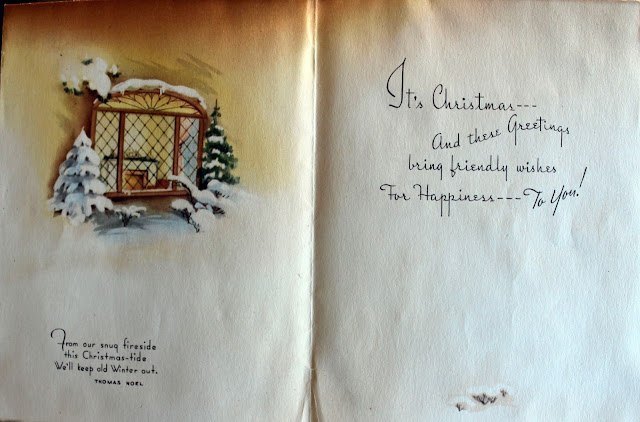 From our snug fireside
this Christmas-tide
We'll keep old Winter out.
THOMAS NOEL
It's Christmas---
And these Greetings
bring friendly wishes
For Happiness---To You!